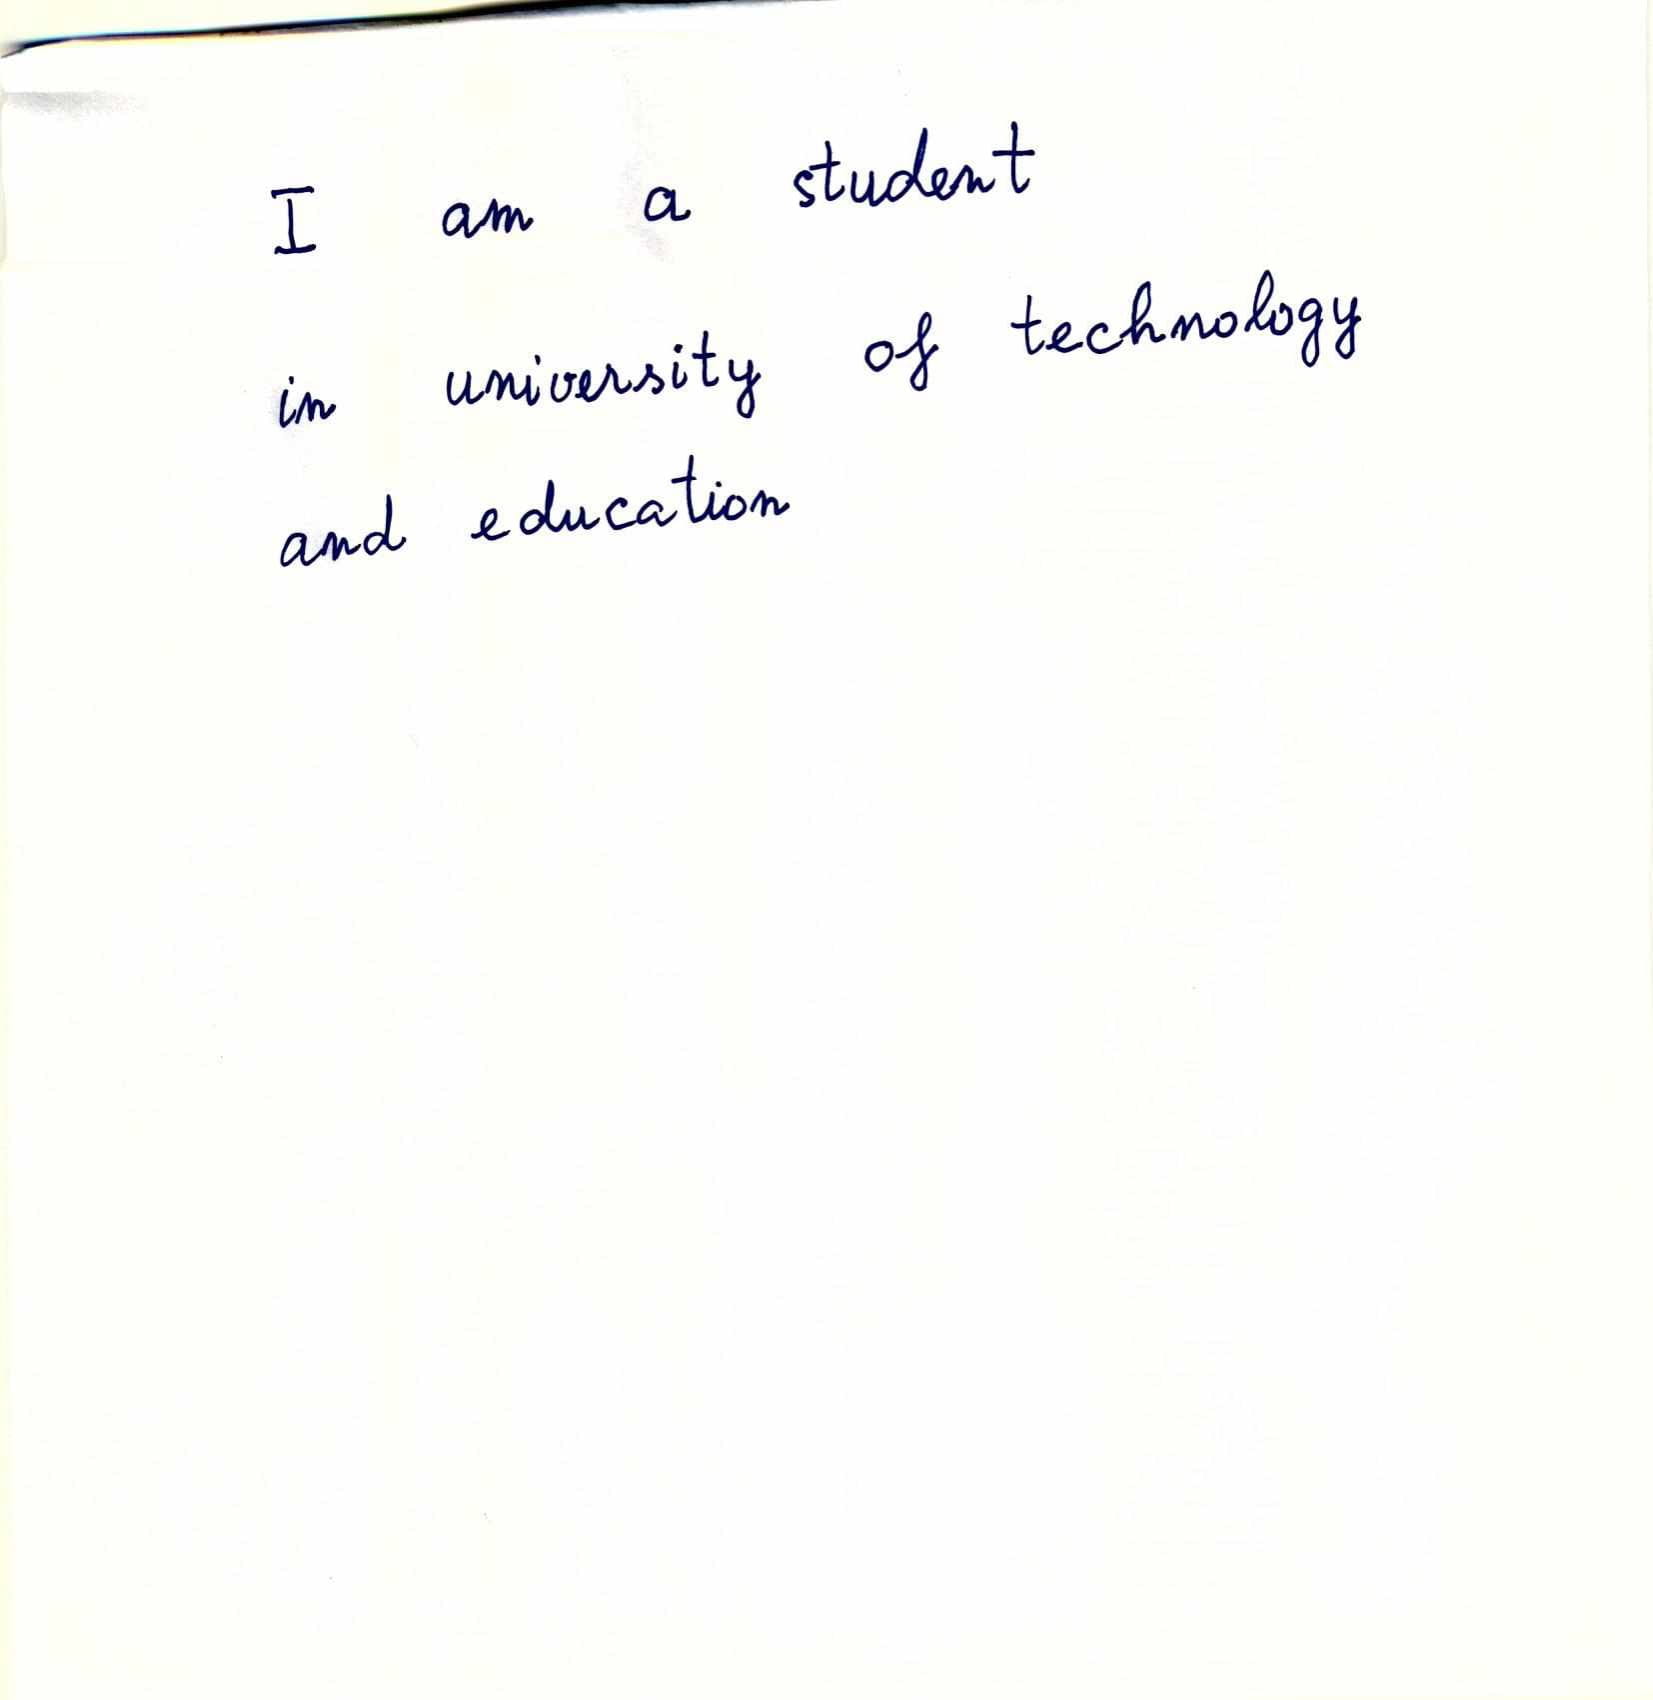 I am a student
in university of technology
and education